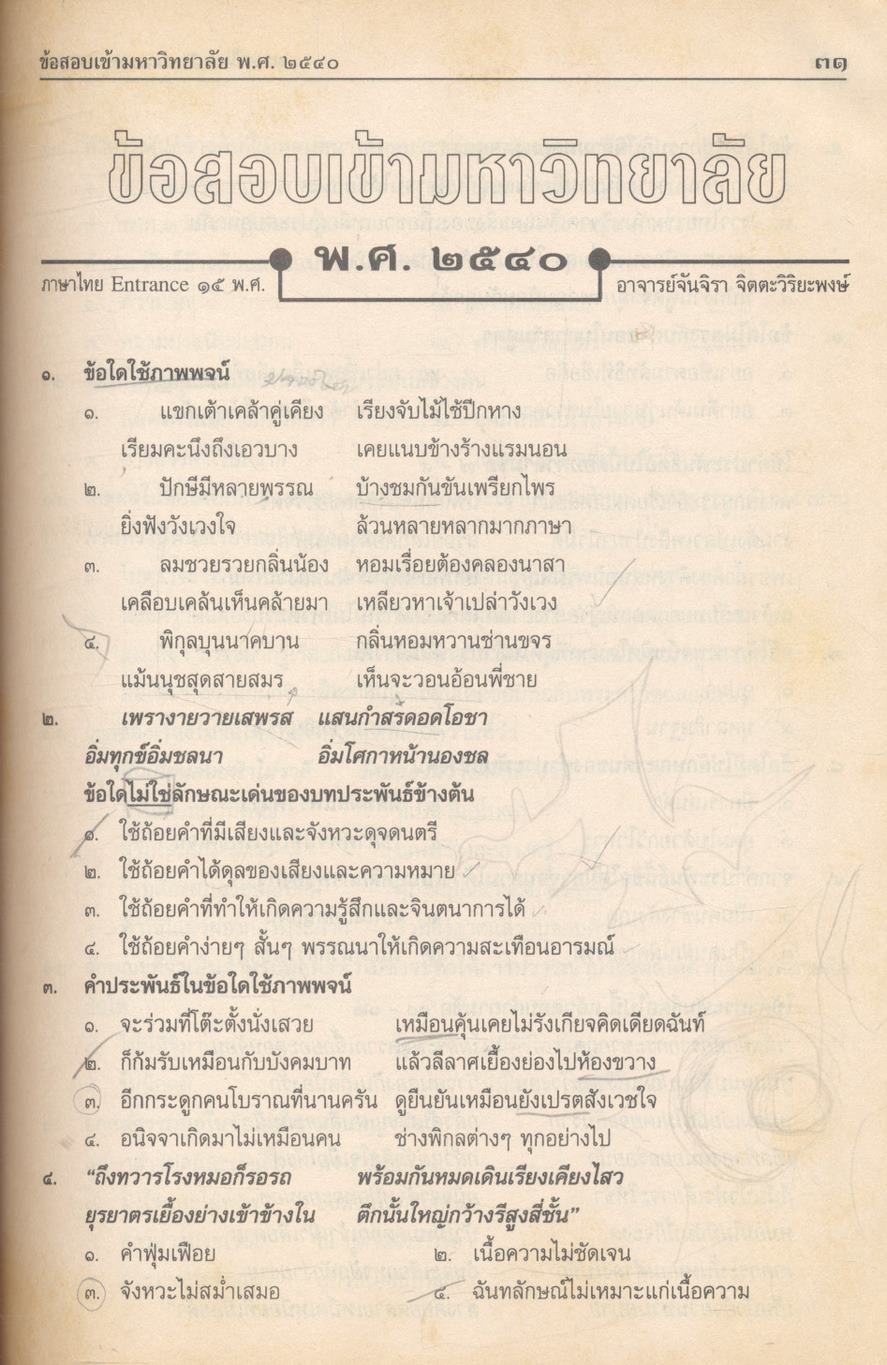 ข้อสอบเข้ามหาวิทยาลัย พ.ศ. ๒๕๔๐ ๓๑
ข้อสอบเข้ามหาวิทยาลัย
พ.ศ. ๒๕๔๐
ภาษาไทย Entrance ๑๕ พ.ศ. อาจารย์จันจิรา จิตตะวิริยะพงษ์
๑. ข้อใดใช้ภาพพจน์
๑. แขกเต้าเคล้าคู่เคียง เรียงจับไม้ไซ้ปีกหาง
เรียมคะนึงถึงเอวบาง เคยแนบข้างร้างแรมนอน
๒. ปักษีมีหลายพรรณ บ้างชมกันขันเพรียกไพร
ยิ่งฟังวังเวงใจ ล้วนหลายหลากมากภาษา
๓. ลมชวยรวยกลิ่นน้อง หอมเรื่อยต้องคลองนาสา
เคลือบเคล้นเห็นคล้ายมา เหลียวหาเจ้าเปล่าวังเวง
๔. พิกุลบุนนาคบาน กลิ่นหอมหวานซ่านขจร
แม้นนุชสุดสายสมร เห็นจะวอนอ้อนพี่ชาย
๒. เพรางายวายเสพรส แสนกำสรดอดโอชา
อิ่มทุกข์อิ่มชลนา อิ่มโศกาหน้านองชล
ข้อใดไม่ใช่ลักษณะเด่นของบทประพันธ์ข้างต้น
๑. ใช้ถ้อยคำที่มีเสียงและจังหวะดุจดนตรี
๒. ใช้ถ้อยคำได้ดุลของเสียงและความหมาย
๓. ใช้ถ้อยคำที่ทำให้เกิดความรู้สึกและจินตนาการได้
๔. ใช้ถ้อยคำง่ายๆ สั้นๆ พรรณนาให้เกิดความสะเทือนอารมณ์
๓. คำประพันธ์ในข้อใดใช้ภาพพจน์
๑. จะร่วมที่โต๊ะตั้งนั่งเสวย เหมือนคุ้นเคยไม่รังเกียจคิดเดียดฉันท์
๒. ก็ก้มรับเหมือนกับบังคมบาท แล้วลีลาศเยื้องย่องไปห้องขวาง
๓. อีกกระดูกคนโบราณที่นานครัน ดูยืนยันเหมือนยังเปรตสังเวชใจ
๔. อนิจจาเกิดมาไม่เหมือนคน ช่างพิกลต่างๆ ทุกอย่างไป
๔. “ถึงทวารโรงหมอก็รอรถ พร้อมกันหมดเดินเรียงเคียงไสว
ยุรยาตรเยื้องย่างเข้าข้างใน ตึกนั้นใหญ่กว้างรีสูงสี่ชั้น”
๑. คำฟุ่มเฟือย ๒. เนื้อความไม่ชัดเจน
๓. จังหวะไม่สม่ำเสมอ ๔. ฉันทลักษณ์ไม่เหมาะแก่เนื้อความ